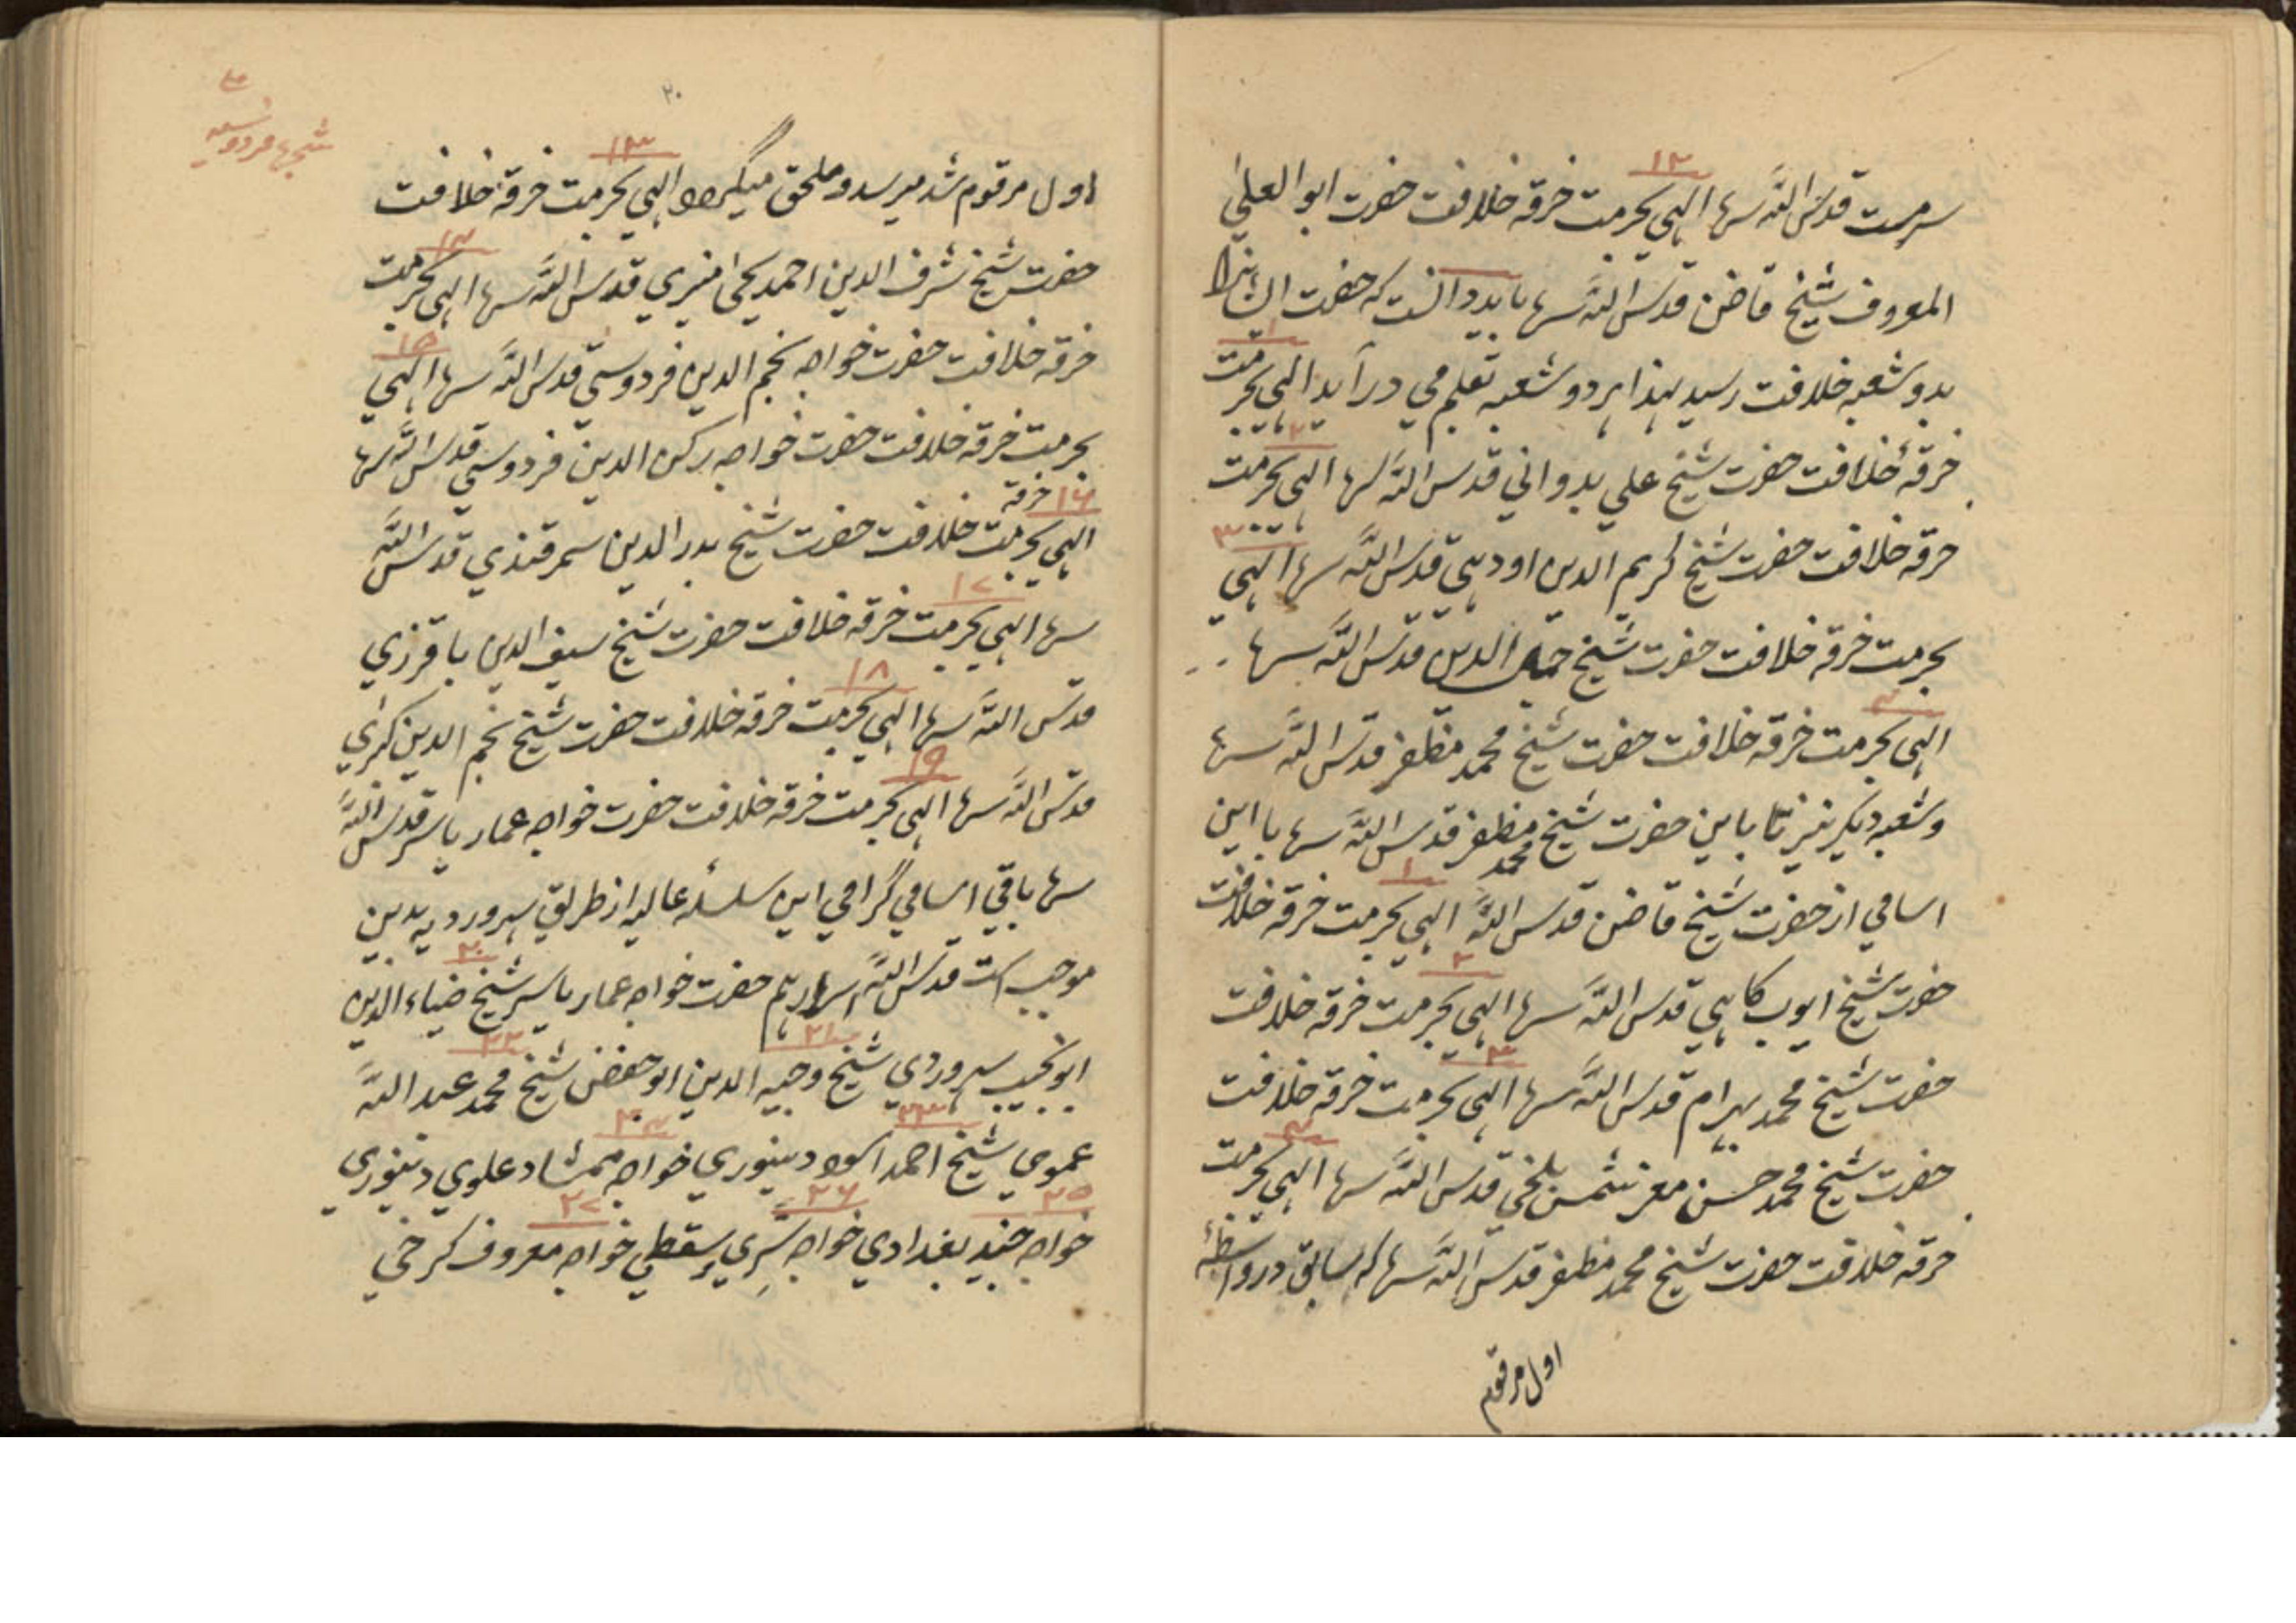 ۱۲
سرمست قدس الله سرها الهي بحرمت خرقه خلافت حضرت ابوالعلی
المعروف شیخ قاضن قدس الله سرها باید دانست که حضرت ایشانرا
۱
بدو شعبه خلافت رسید لهذا هر دو شعبه بقلم مي درآید الهي بحرمت
۲
خرقهٔ خلافت حضرت شیخ علي بدواني قدس الله سرها الهي بحرمت
۳
خرقه خلافت حضرت شیخ کریم الدین اودهي قدس الله سرها الهي
بحرمت خرقه خلافت حضرت شیخ الدین قدس الله سرها
۴
الهي بحرمت خرقه خلافت حضرت شیخ محمد مظفر قدس الله سرها
وشعبه دیگر نیز تا باین حضرت شیخ محمد مظفر قدس الله سرها با این
۱
اسامي از حضرت شیخ قاضن قدس الله الهي بحرمت خرقه خلافت
۲
حضرت شیخ ایوب کاهي قدس الله سرها الهي بحرمت خرقه خلافت
۳
حضرت شیخ محمد بهرام قدس الله سرها الهي بحرمت خرقه خلافت
۴
حضرت شیخ محمد حسن معز شمس بلخي قدس الله سرها الهي بحرمت
خرقه خلافت حضرت شیخ محمد مظفر قدس الله سرها که سابق در واسطهٔ
اول مرقوم
۲۰
۱۳
اول مرقوم شد میرسد و ملحق میگردد الهي بحرمت خرقه خلافت
۱۴
حضرت شیخ شرف الدین احمد یحیی منیري قدس الله سرها الهي بحرمت
۱۵
خرقه خلافت حضرت خواجه نجم الدین فردوسي قدس الله سرها الهي
بحرمت خرقه خلافت حضرت خواجه رکن الدین فردوسي قدس الله سرها
۱۶ خرقه
الهي بحرمت خلافت حضرت شیخ بدر الدین سمرقندي قدس الله
۱۷
سرها الهي بحرمت خرقه خلافت حضرت شیخ سیف الدین باقرزي
۱۸
قدس الله سرها الهي بحرمت خرقه خلافت حضرت شیخ نجم الدین کبری
۱۹
قدس الله سرها الهي بحرمت خرقه خلافت حضرت خواجه عمار یاسر قدس الله
سرها باقي اسامي گرامي این سلسله عالیه از طریق سهروردیه بدین
۲۰
موجب است قدس الله اسرارهم حضرت خواجه عمار یاسر شیخ ضیاء الدین
۲۱ ۲۲
ابونجیب سهروردي شیخ وجیه الدین ابوحفض شیخ محمد عبد الله
۲۳ ۲۴
عموي شیخ احمد اسود دینوري خواجه ممشاد علوي دینوري
۲۵ ۲۶ ۲۷
خواجه جنید بغدادي خواجه سري سقطي خواجه معروف کرخي